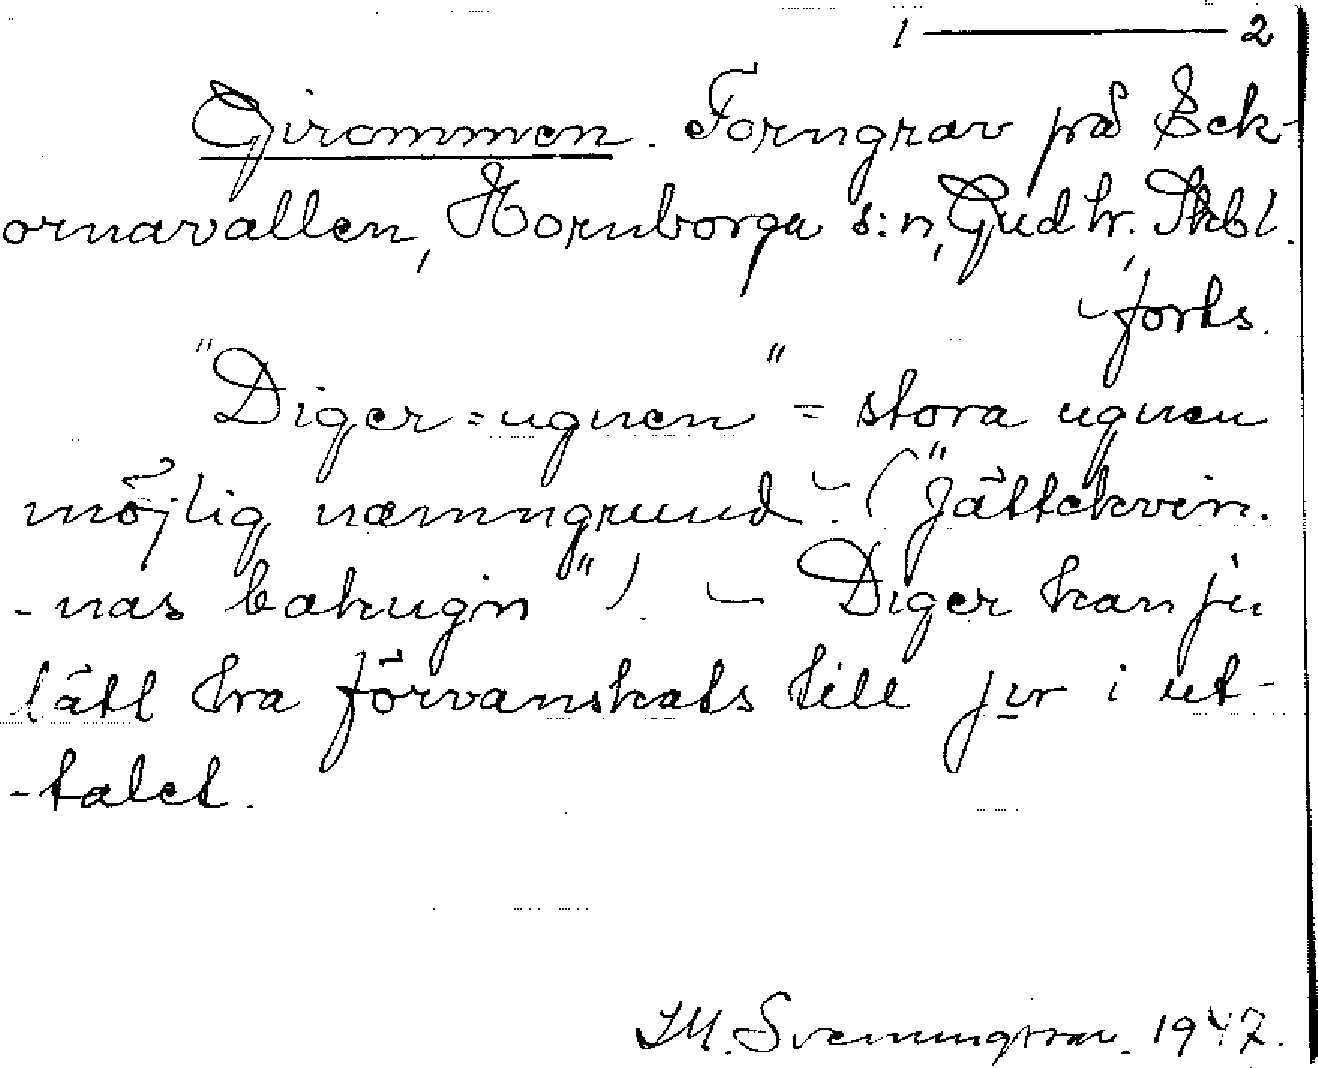 1 ——— 2
Girommen. Forngrav på Eck-
ornavallen, Hornborga s:n, Gudh. Skbl.
forts.
"Diger=ugnen" = stora ugnen
möjlig namngrund. ("Jättekvin.
-nas bakugn"). — Diger kan ju
lätt ha förvanskats till jir i ut-
-talet.
M. Svenningsson. 1947.